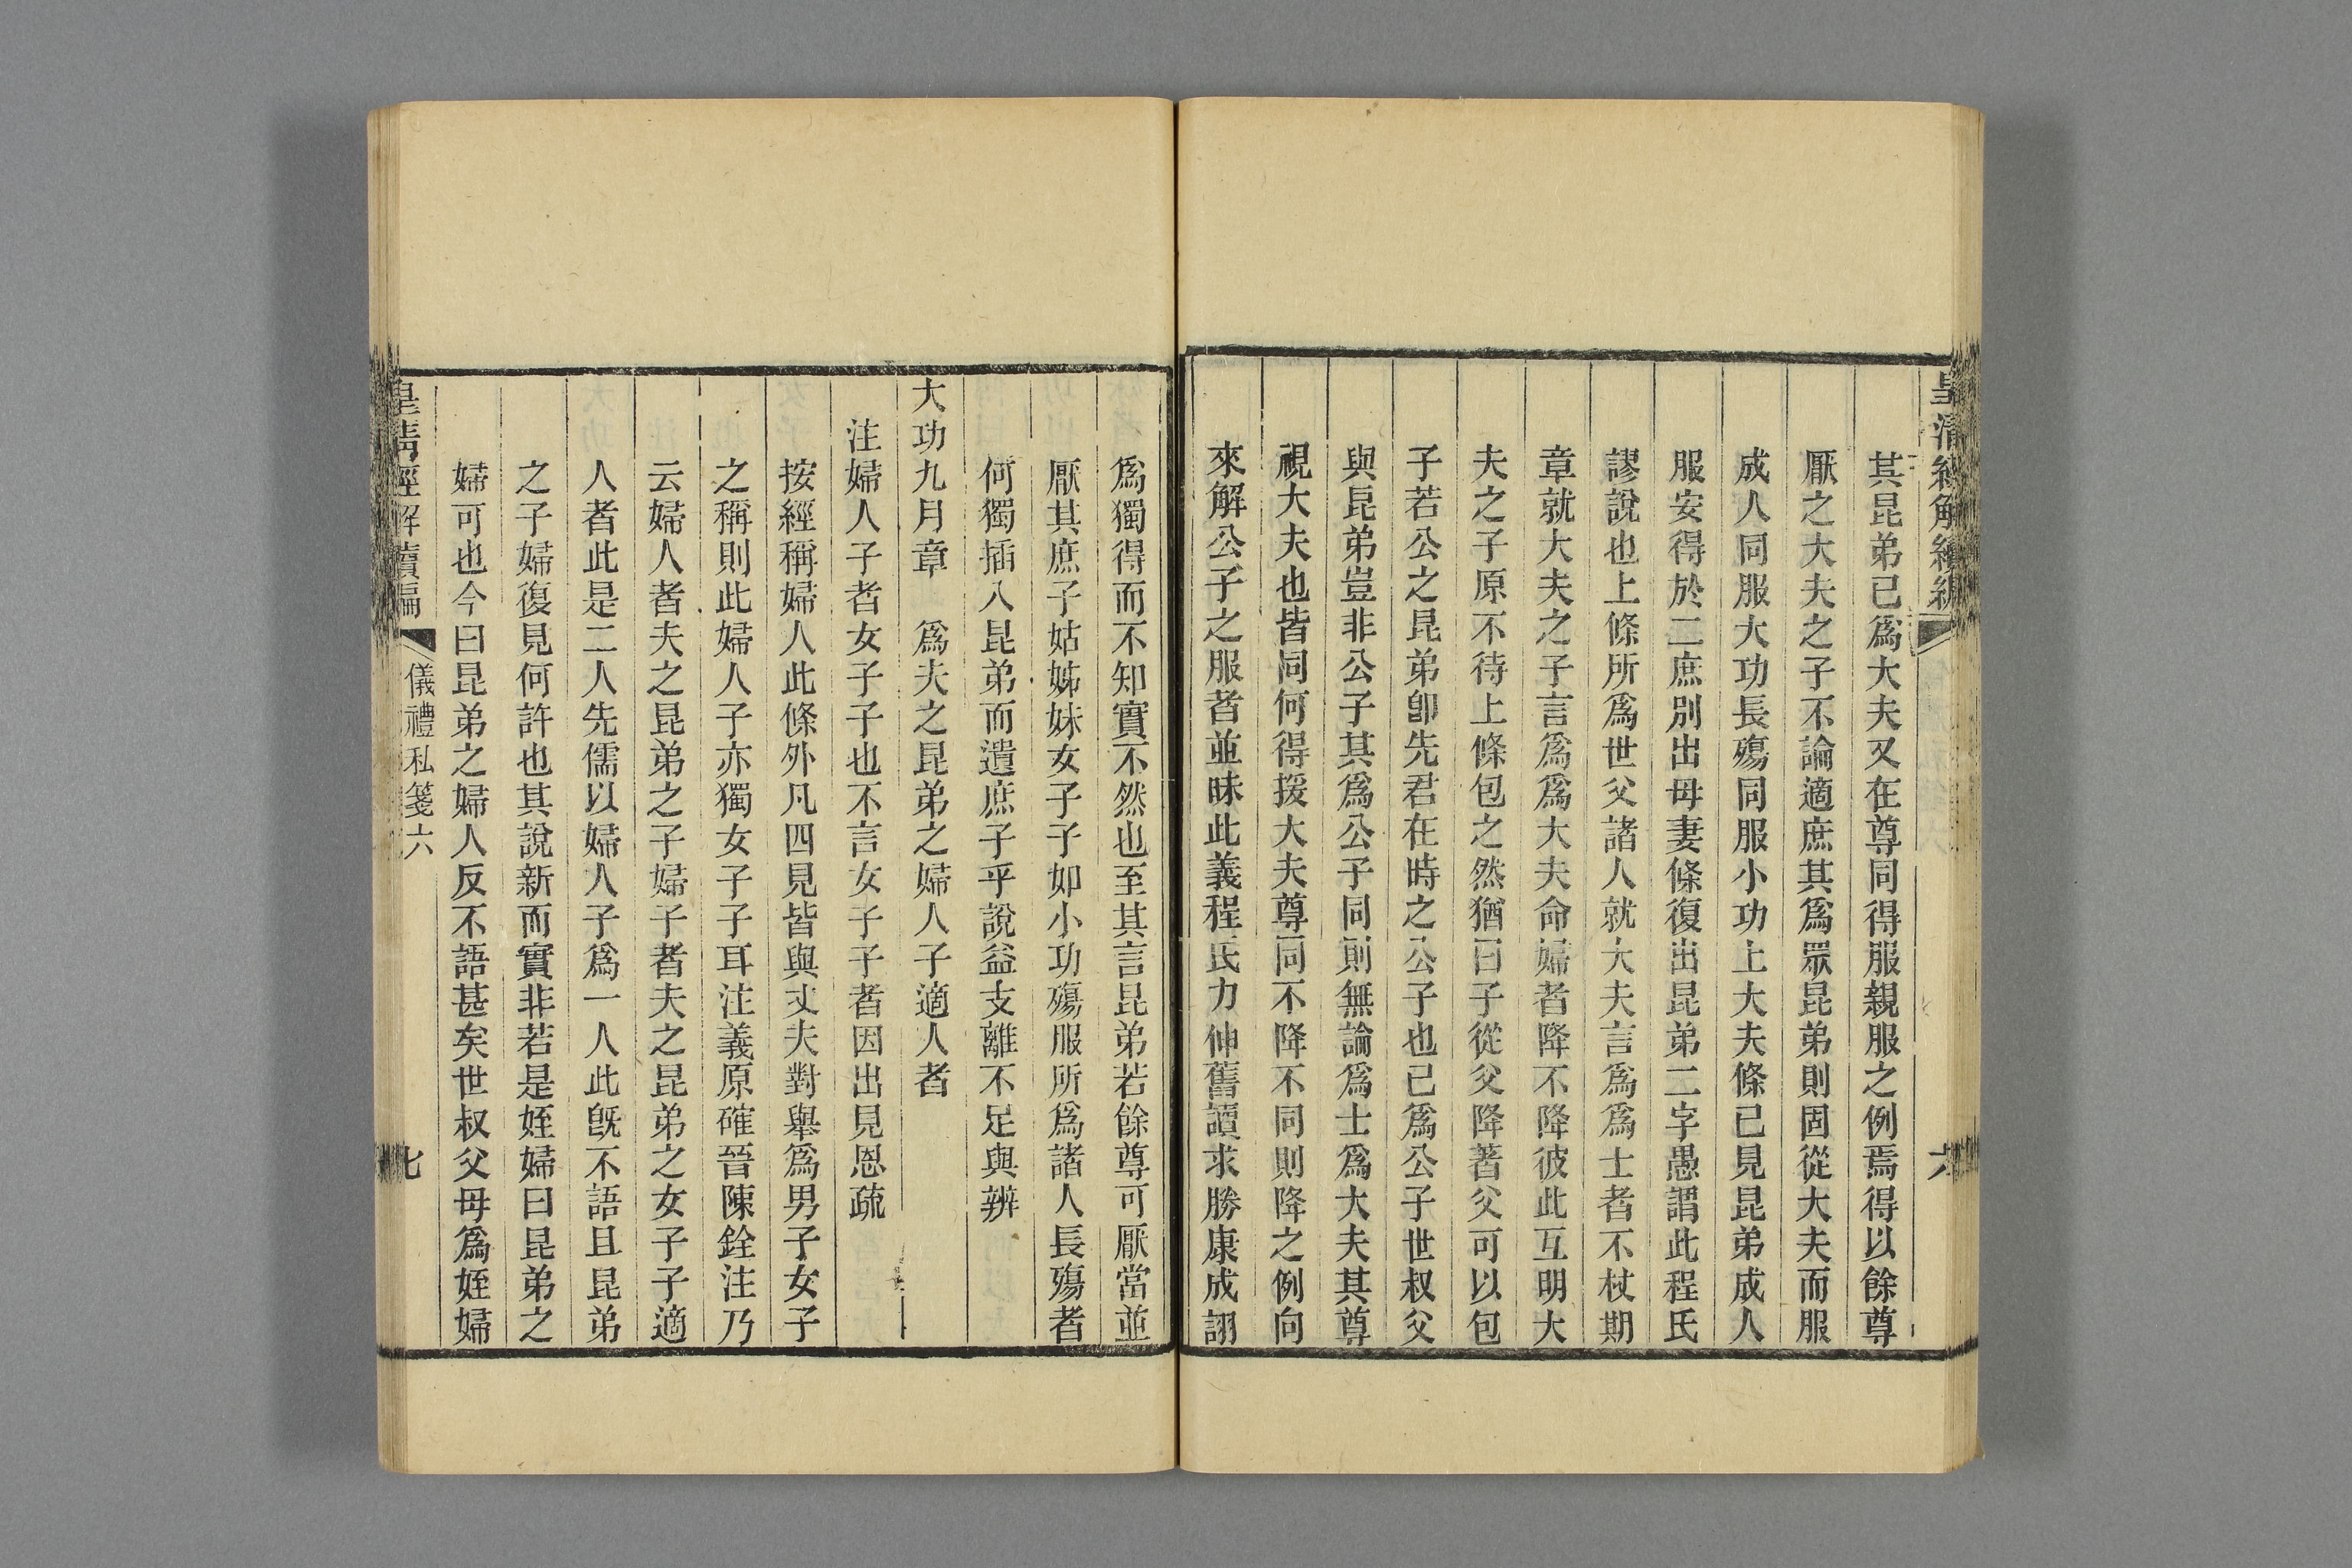 皇清經解續編
六
其昆弟已爲大夫又在尊同得服親服之例焉得以餘尊
厭之大夫之子不論適庶其爲眾昆弟則固從大夫而服
成人同服大功長殤同服小功上大夫條已見昆弟成人
服安得於二庶別出母妻條復出昆弟二字愚謂此程氏
謬說也上條所爲世父諸人就大夫言爲爲士者不杖期
章就大夫之子言爲爲大夫命婦者降不降彼此互明大
夫之子原不待上條包之然猶曰子從父降著父可以包
子若公之昆弟卽先君在時之公子也已爲公子世叔父
與昆弟豈非公子其爲公子同則無論爲士爲大夫其尊
視大夫也皆同何得援大夫尊同不降不同則降之例向
來解公子之服者並昧此義程氏力伸舊讀求勝康成詡
爲獨得而不知實不然也至其言昆弟若餘尊可厭當並
厭其庶子姑姊妹女子子如小功殤服所爲諸人長殤者
何獨插入昆弟而遺庶子乎說益支離不足與辨
大功九月章　爲夫之昆弟之婦人子適人者
注婦人子者女子子也不言女子子者因出見恩疏
按經稱婦人此條外凡四見皆與丈夫對舉爲男子女子
之稱則此婦人子亦獨女子子耳注義原確晉陳銓注乃
云婦人者夫之昆弟之子婦子者夫之昆弟之女子子適
人者此是二人先儒以婦人子爲一人此旣不語且昆弟
之子婦復見何許也其說新而實非若是姪婦曰昆弟之
婦可也今曰昆弟之婦人反不語甚矣世叔父母爲姪婦
皇清經解續編
儀禮私箋六
七